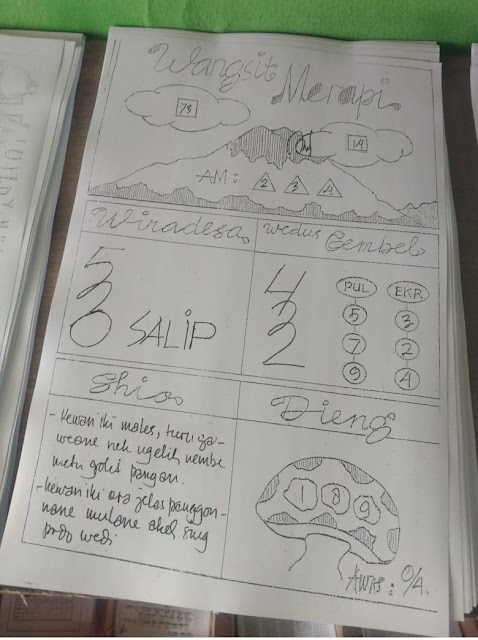 Wangsit
Merapi
73
14
AM: 2 3 4
Wiradesa
5
3
0 SALIP
Wedus Gembel
4
7
2
PUL EKR
5 3
7 2
9 4
Shio
- Hewan iki males, turu ga-
weane nek ngelih nembe
metu golei pangan.
- Hewan iki ora jelas panggon-
nane mulane akeh sing
podo wedi
Dieng
1 8 9
AWAS: 0/4.